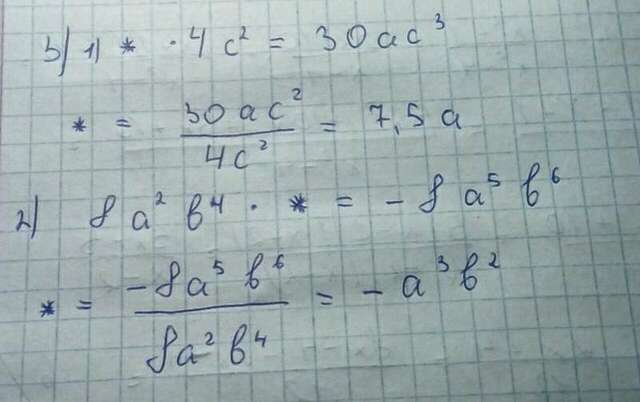 3) 1) * · 4c² = 30ac³
* = 30ac²/4c² = 7,5a
2) 8a²b⁴ · * = -8a⁵b⁶
* = -8a⁵b⁶/8a²b⁴ = -a³b²